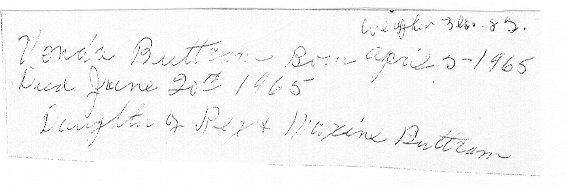 Weight 3 lbs. 8 oz.
Vonda Buttram Born April 5-1965
Died June 20th 1965
Daughter of Rex & Maxine Buttram